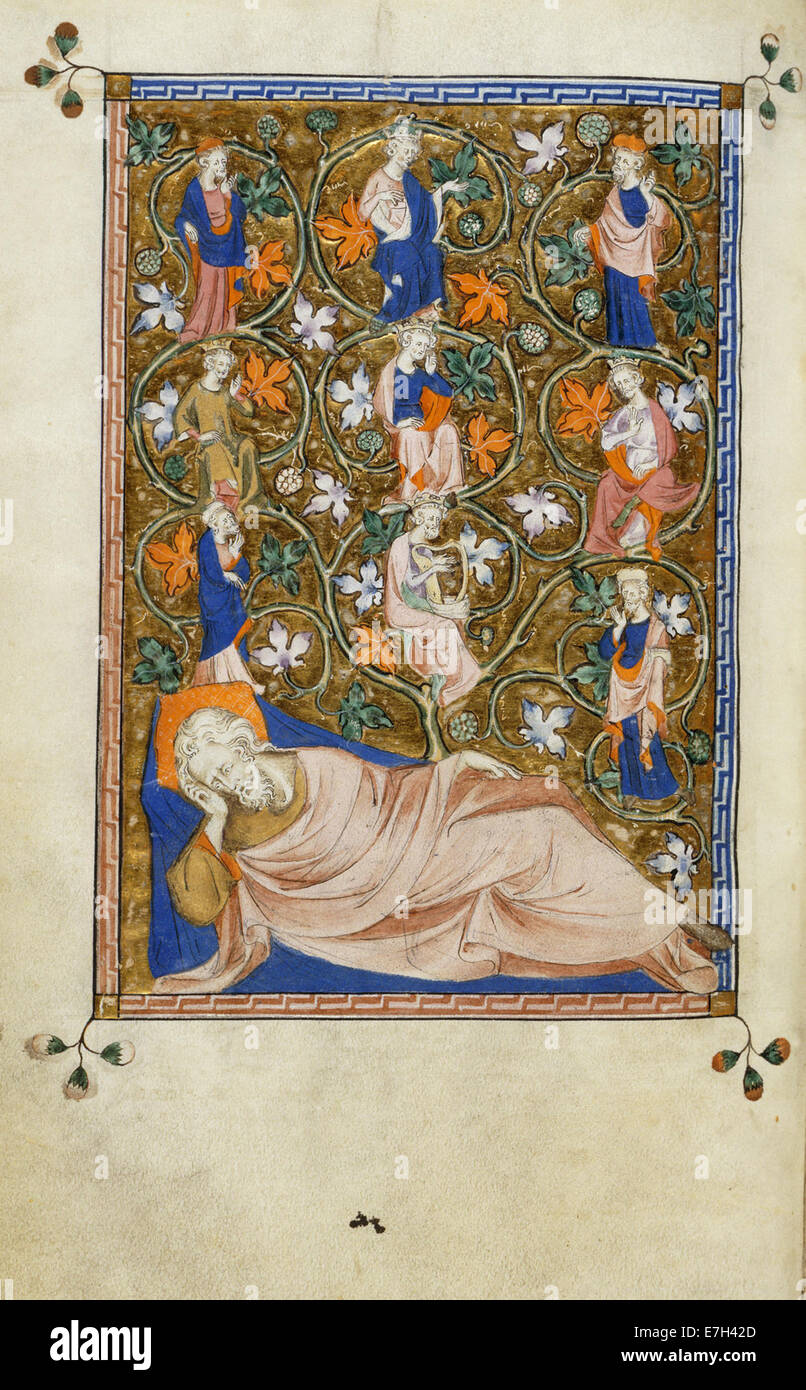 alamy
Image ID: E7H42D
www.alamy.com